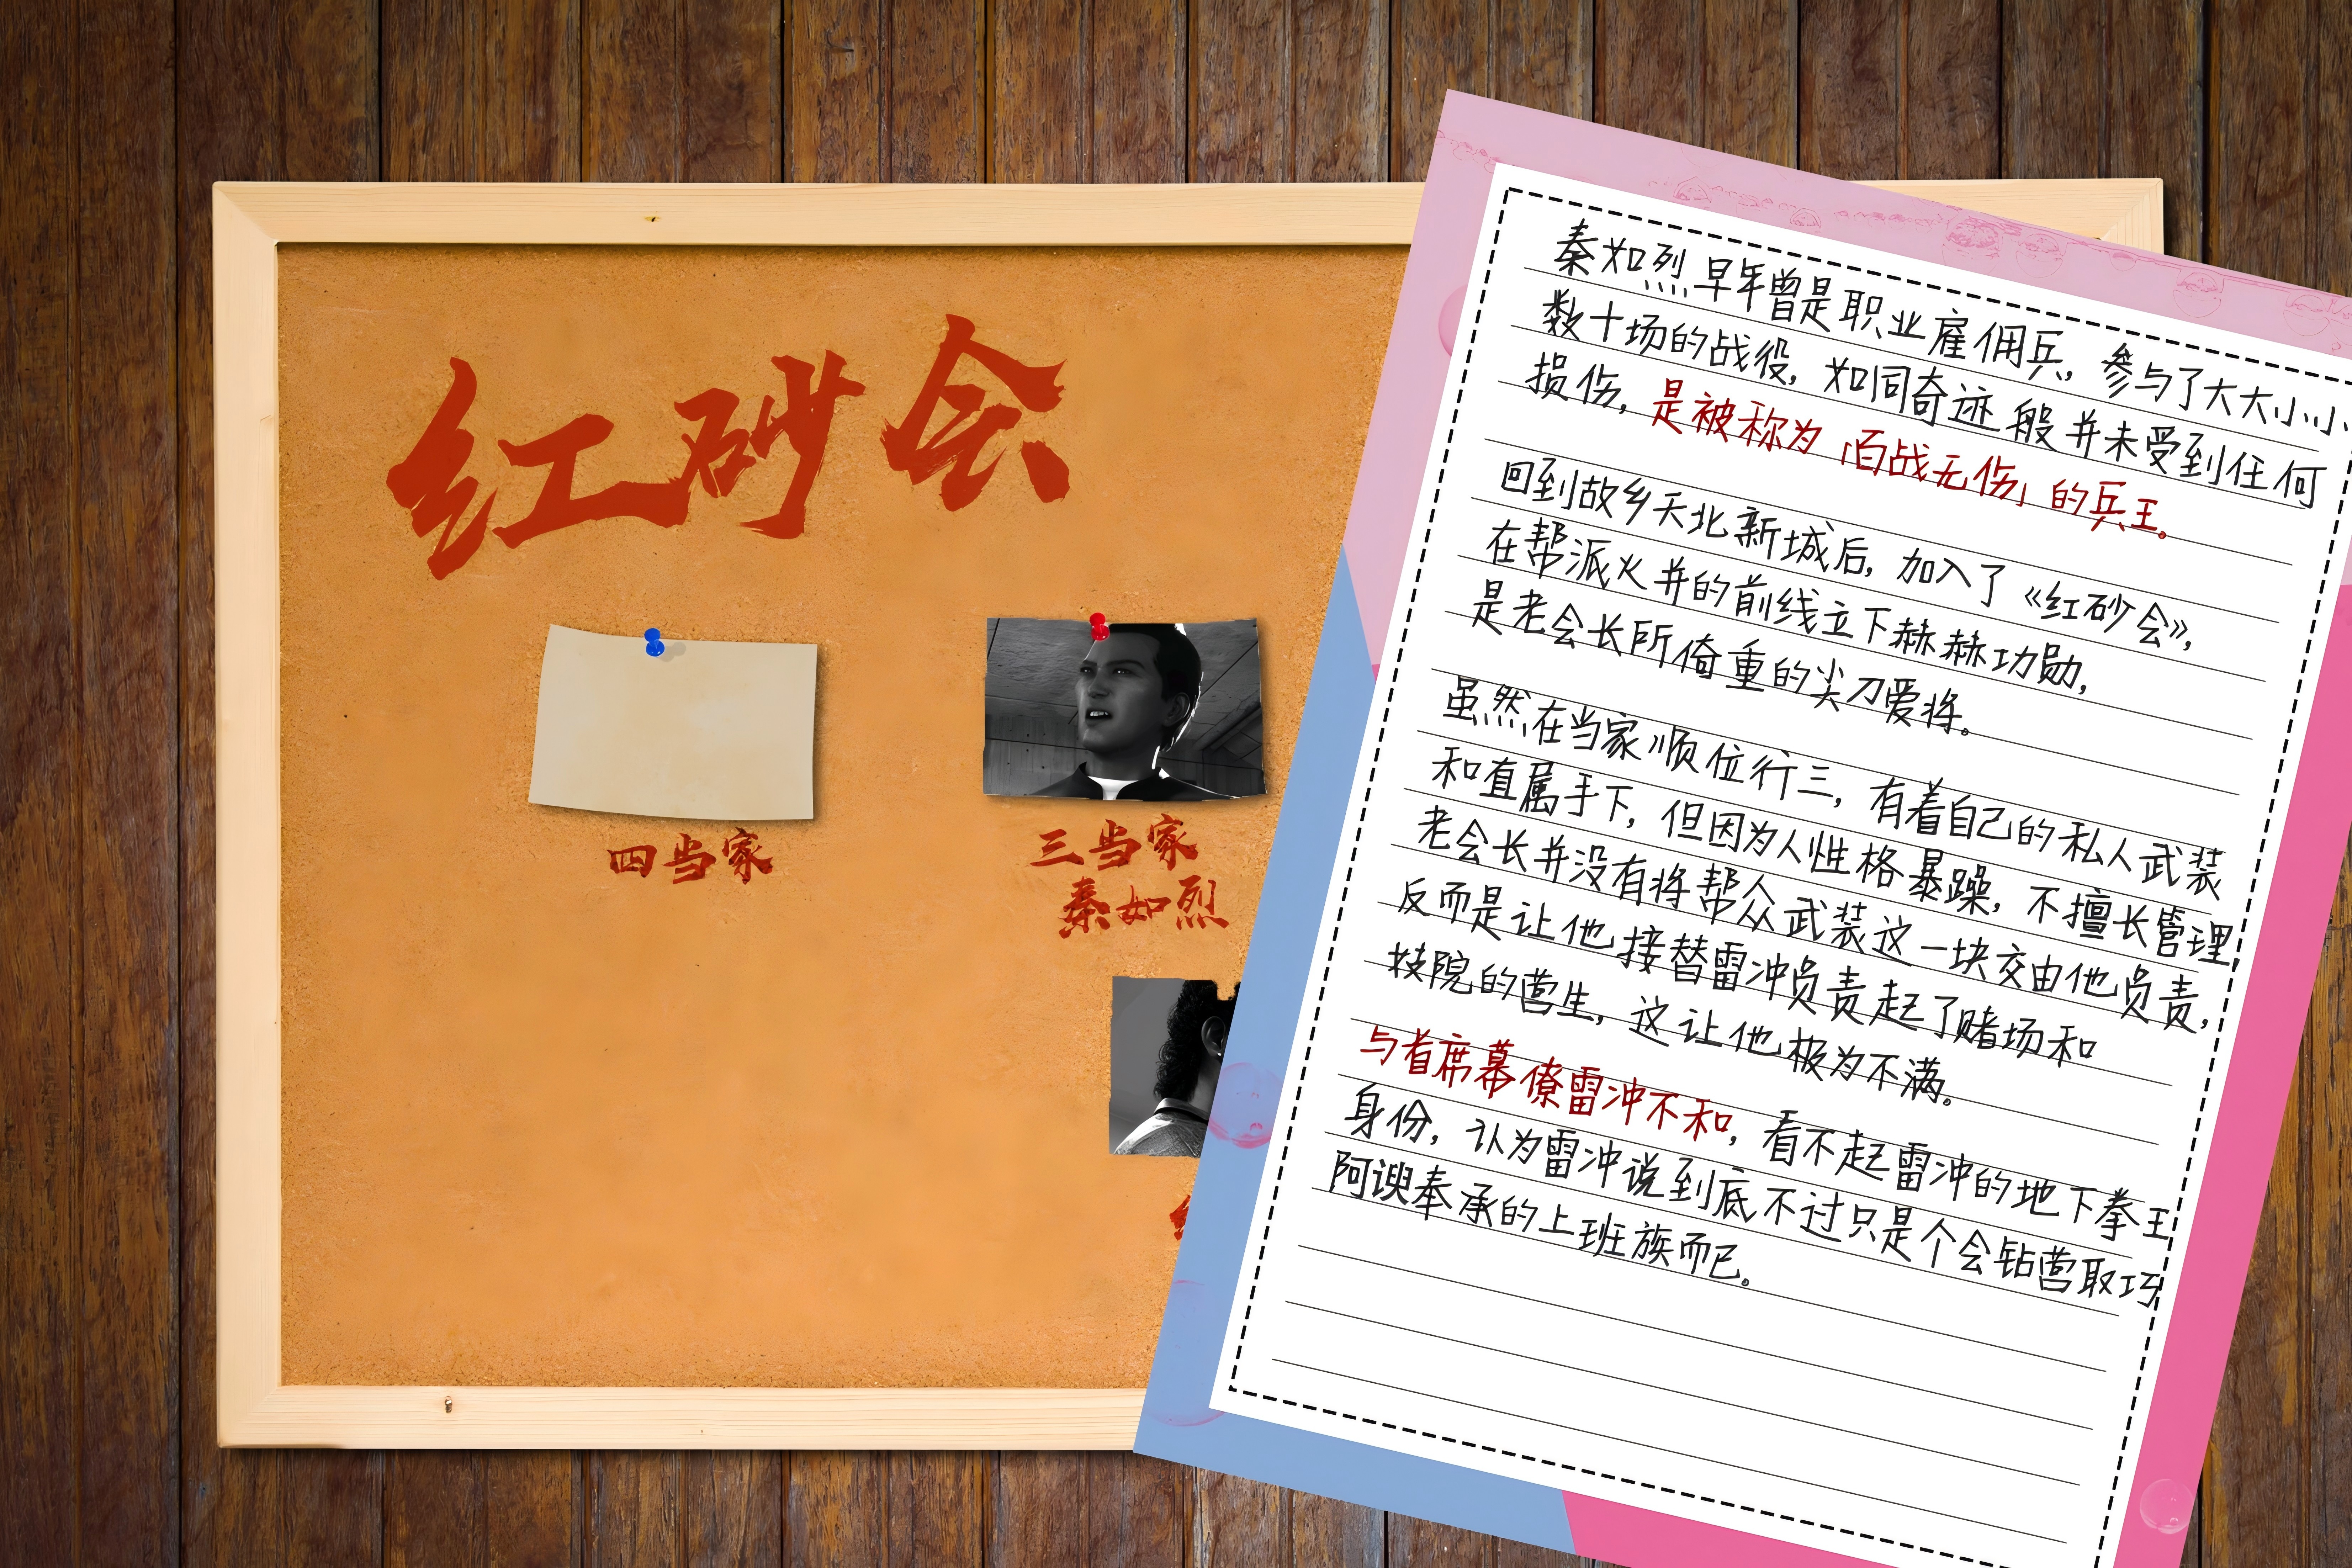 红砂会
四当家
三当家
秦如烈
秦如烈早年曾是职业雇佣兵，参与了大大小小
数十场的战役，如同奇迹般并未受到任何
损伤，是被称为「百战无伤」的兵王。
回到故乡天北新城后，加入了《红砂会》，
在帮派火并的前线立下赫赫功勋，
是老会长所倚重的尖刀爱将。
虽然在当家顺位行三，有着自己的私人武装
和直属手下，但因为人性格暴躁，不擅长管理，
老会长并没有将帮众武装这一块交由他负责，
反而是让他接替雷冲负责起了赌场和
技院的营生，这让他极为不满。
与首席幕僚雷冲不和，看不起雷冲的地下拳王
身份，认为雷冲说到底不过只是个会钻营取巧
阿谀奉承的上班族而已。